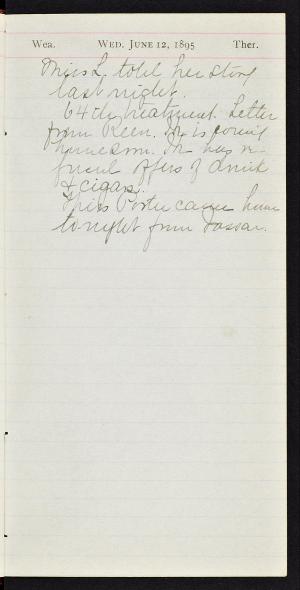 Wea. WED. JUNE 12, 1895 Ther.
Miss L. told her story
last night.
64th treatment. Letter
from Keen. He is coming
home soon. He has re-
fused offers of drink
& cigars.
Miss Porter came home
to-night from Vassar.